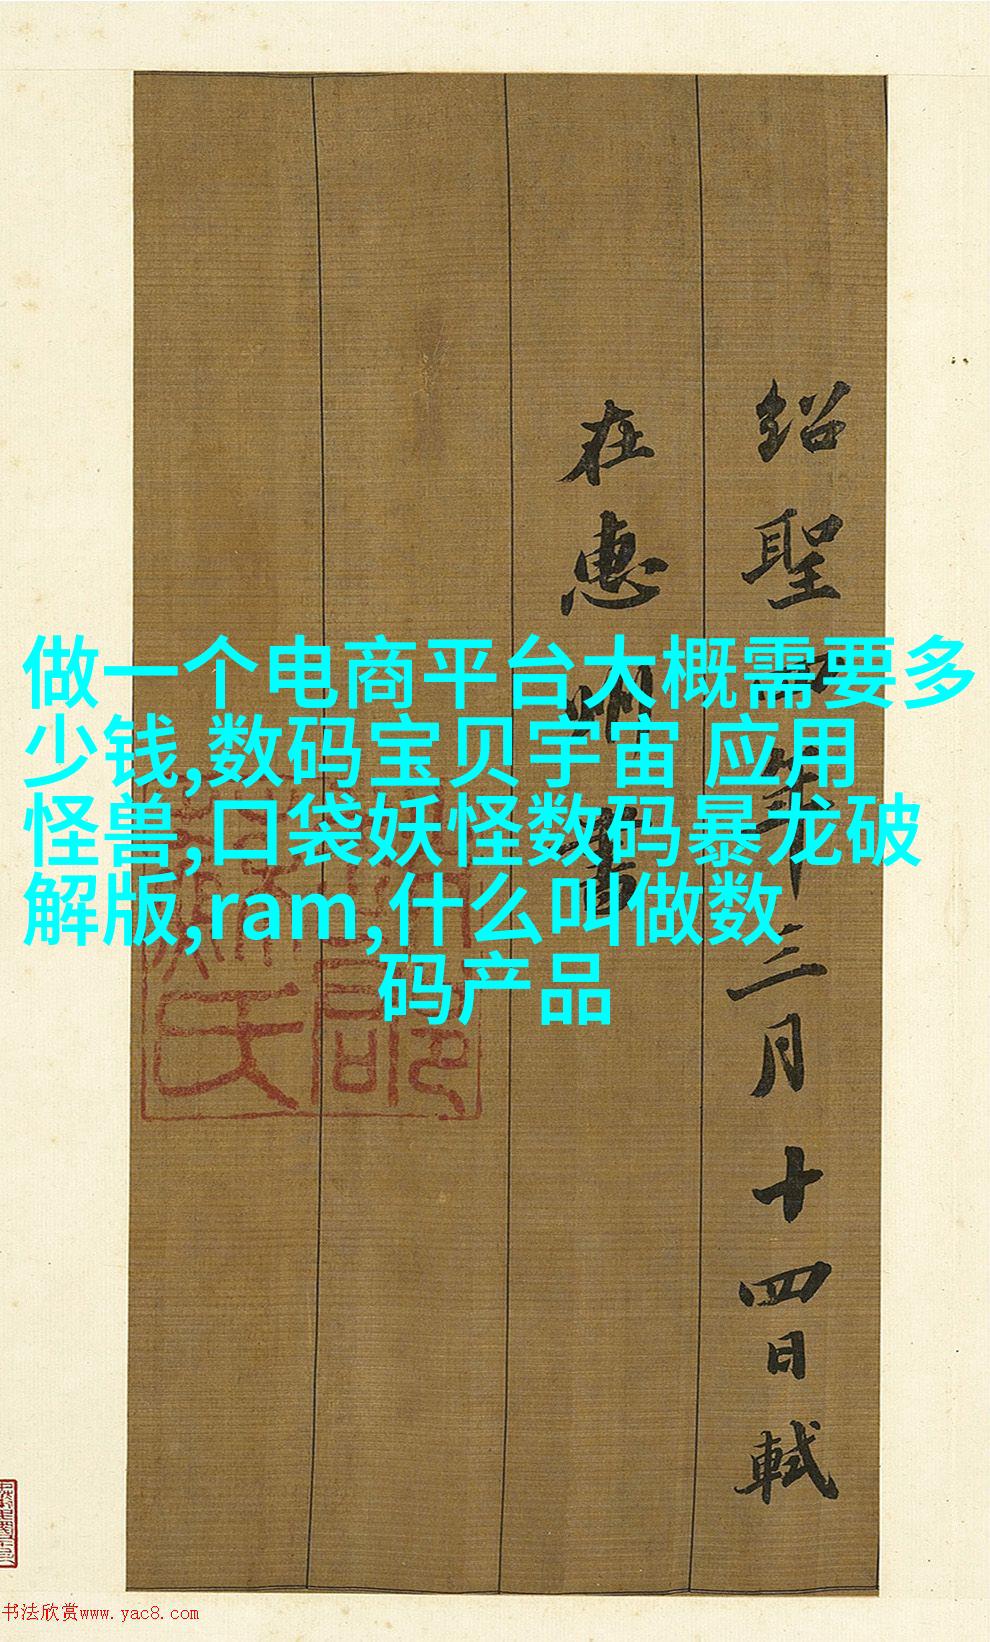 做一个电商平台大概需要多
少钱,数码宝贝宇宙 应用
怪兽,口袋妖怪数码暴龙破
解版,ram,什么叫做数
码产品
绍聖四年三月十四日軾
在惠州書
书法欣赏www.yac8.com